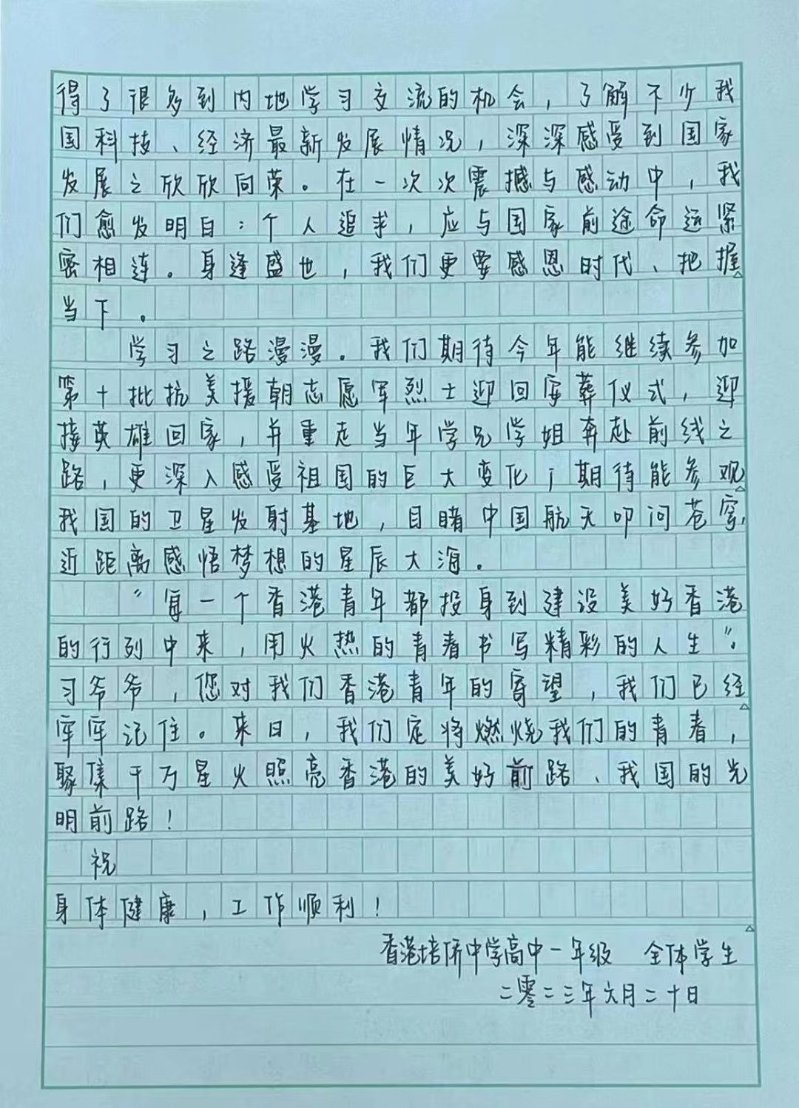 得了很多到内地学习交流的机会，了解不少我
国科技、经济最新发展情况，深深感受到国家
发展之欣欣向荣。在一次次震撼与感动中，我
们愈发明白：个人追求，应与国家前途命运紧
密相连。身逢盛世，我们更要感恩时代、把握
当下。
学习之路漫漫。我们期待今年能继续参加
第十批抗美援朝志愿军烈士迎回安葬仪式，迎
接英雄回家，并重走当年学兄学姐奔赴前线之
路，更深入感受祖国的巨大变化；期待能参观
我国的卫星发射基地，目睹中国航天叩问苍穹，
近距离感悟梦想的星辰大海。
“每一个香港青年都投身到建设美好香港
的行列中来，用火热的青春书写精彩的人生”。
习爷爷，您对我们香港青年的寄望，我们已经
牢牢记住。来日，我们定将燃烧我们的青春，
聚集千万星火照亮香港的美好前路、我国的光
明前路！
祝
身体健康，工作顺利！
香港培侨中学高中一年级 全体学生
二零二三年六月二十日